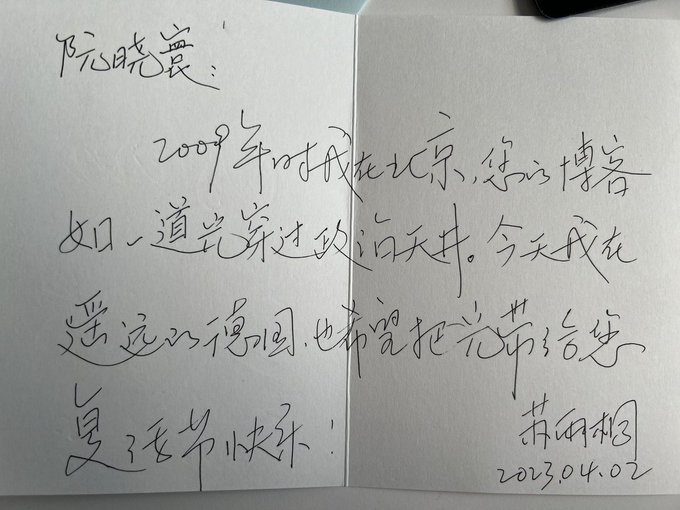 阮晓寰:
2009年时我在北京,您的博客
如一道光穿过政治天井。今天我在
遥远的德国,也希望把光带给您
复活节快乐!
苏雨桐
2023.04.02